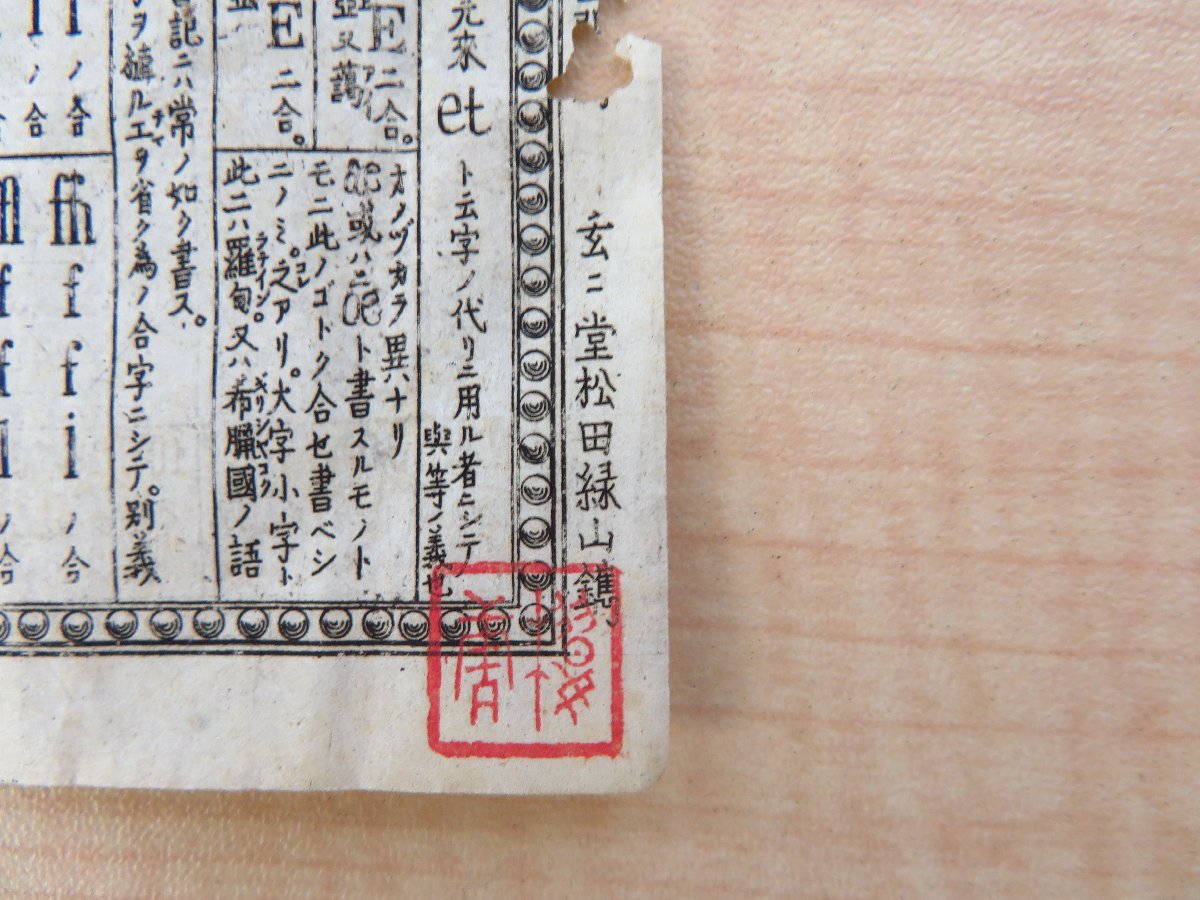 玄二堂松田緑山鐫
元來et
ト云字ノ代リニ用ル者ニシテ
與等ノ義也
E二合。
亞又
オノヅカラ異ハナリ
æ或ハニœト書スルモノト
モニ此ノゴトク合セ書ベシ
E二合。
ニノミ。之アリ。大字小字ト
コレ
此二ハ羅甸又ハ希臘國ノ語
ラテイン。
ギリシヤコク
記ニハ常ノ如ク書ス。
ヲ
ルエヲ省ク為ノ合字ニシテ。別義
ノ合
ノ合
fh
f
f
i
ノ合
f
f
l
ノ合